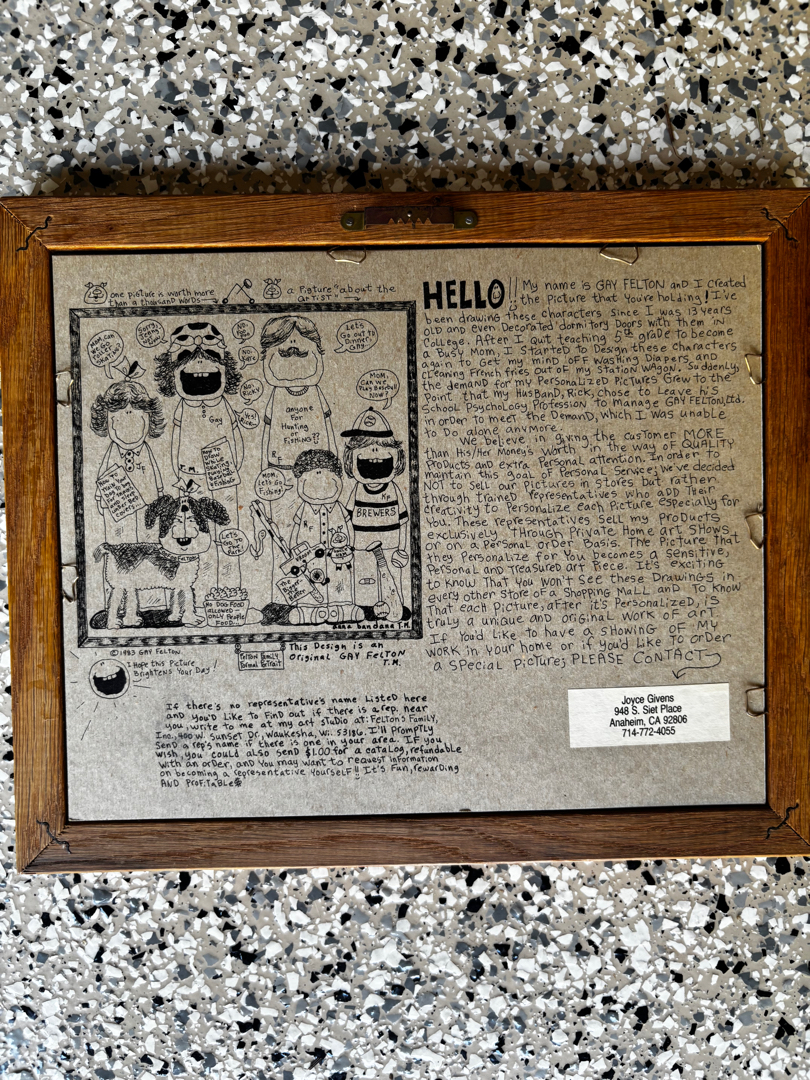 one picture is worth more
than a thousand words
a picture "about the
artist"
HELLO!! My name is GAY FELTON and I created
the picture that you're holding! I've
been drawing these characters since I was 13 years
old and even Decorated dormitory Doors with them in
College. After I quit teaching 5th grade to become
a Busy Mom, I Started to Design these Characters
again to get my mind off washing Diapers and
cleaning French fries out of my station wagon. Suddenly,
the demand for my Personalized Pictures Grew to the
Point that my Husband, Rick, chose to Leave his
School Psychology Profession to manage GAY FELTON, Ltd.
in order to meet the Demand, which I was unable
to Do alone anymore.
We believe in giving the customer MORE
than His/Her Money's worth in the way of QUALITY
Products and extra Personal attention. In order to
maintain this goal of Personal Service, we've decided
NOT to sell our pictures in stores but rather
through trained representatives who add their
creativity to Personalize each Picture especially for
you. These representatives sell my Products
exclusively through Private Home art Shows
or on a Personal order Basis. The Picture that
they Personalize for You becomes a sensitive,
Personal and Treasured art Piece. It's exciting
to know that you won't see these Drawings in
every other store of a Shopping Mall and to know
that each Picture, after it's Personalized, is
truly a unique and original work of art
If you'd like to have a showing of my
work in your home or if you'd like to order
a special picture, PLEASE CONTACT
Joyce Givens
948 S. Siet Place
Anaheim, CA 92806
714-772-4055
Mom, can
we go
roller
skating?
No,
Gay!
No,
Gary!
No,
Ricky
Yes!
Let's
Go out to
Dinner,
Gay.
Mom,
Can we
Play Baseball
Now?
Gay
anyone
For
Hunting
or
Fishing??
Mom,
Let's Go
Fishing!
RF
RF
KP
BREWERS
Let's
Go to
No Dog Food
allowed—
only People
Food...
The
Bigger
the
Better
anna bandana T.M.
©1983 GAY FELTON
Felton Family
Formal Portrait
This Design is an
Original GAY FELTON
T.M.
I Hope this Picture
Brightens Your Day!
If there's no representative's name Listed here
and you'd Like to Find out if there is a rep. near
you, write to me at my art studio at: Felton's Family,
Inc. 400 W. Sunset Dr., Waukesha, Wi. 53186. I'll Promptly
Send a rep's name if there is one in your area. If you
wish, you could also send $1.00 for a catalog, refundable
with an order, and you may want to request information
on becoming a representative yourself!! It's Fun, rewarding
AND Profitable